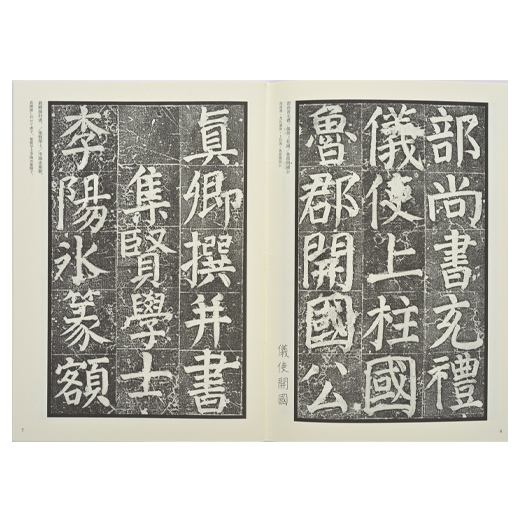 部尚書充禮
儀使上柱國
魯郡開國公
儀使開國
真卿撰并書
集賢學士
李陽冰篆額